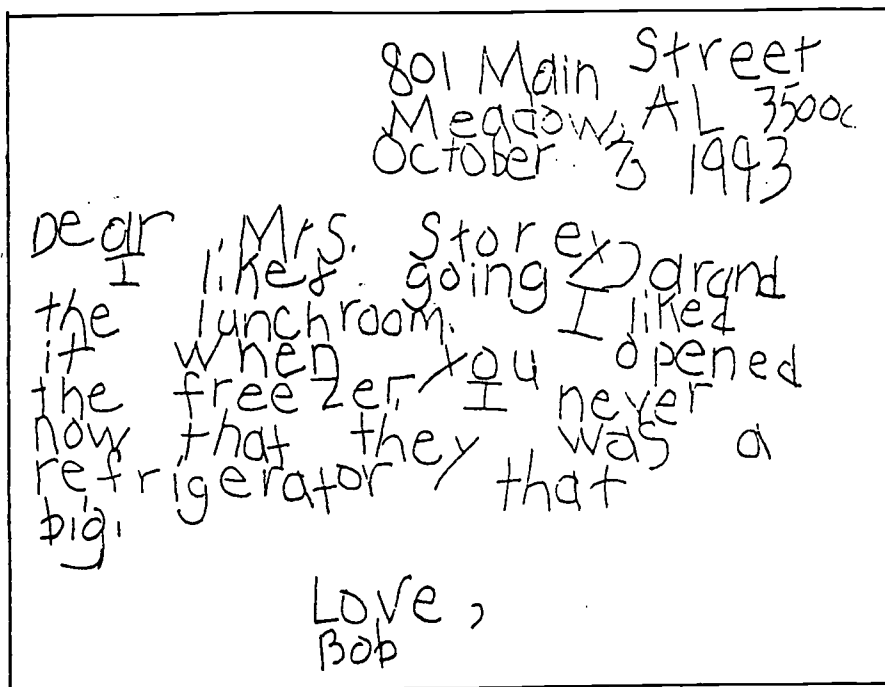 801 Main Street
Meadow, AL 3500
October 1993
Dear Mrs. Storey
I liked going arand
the lunchroom. I liked
it when you opened
the freezer, I never
now that they was a
refrigerator they that
big.
Love,
Bob